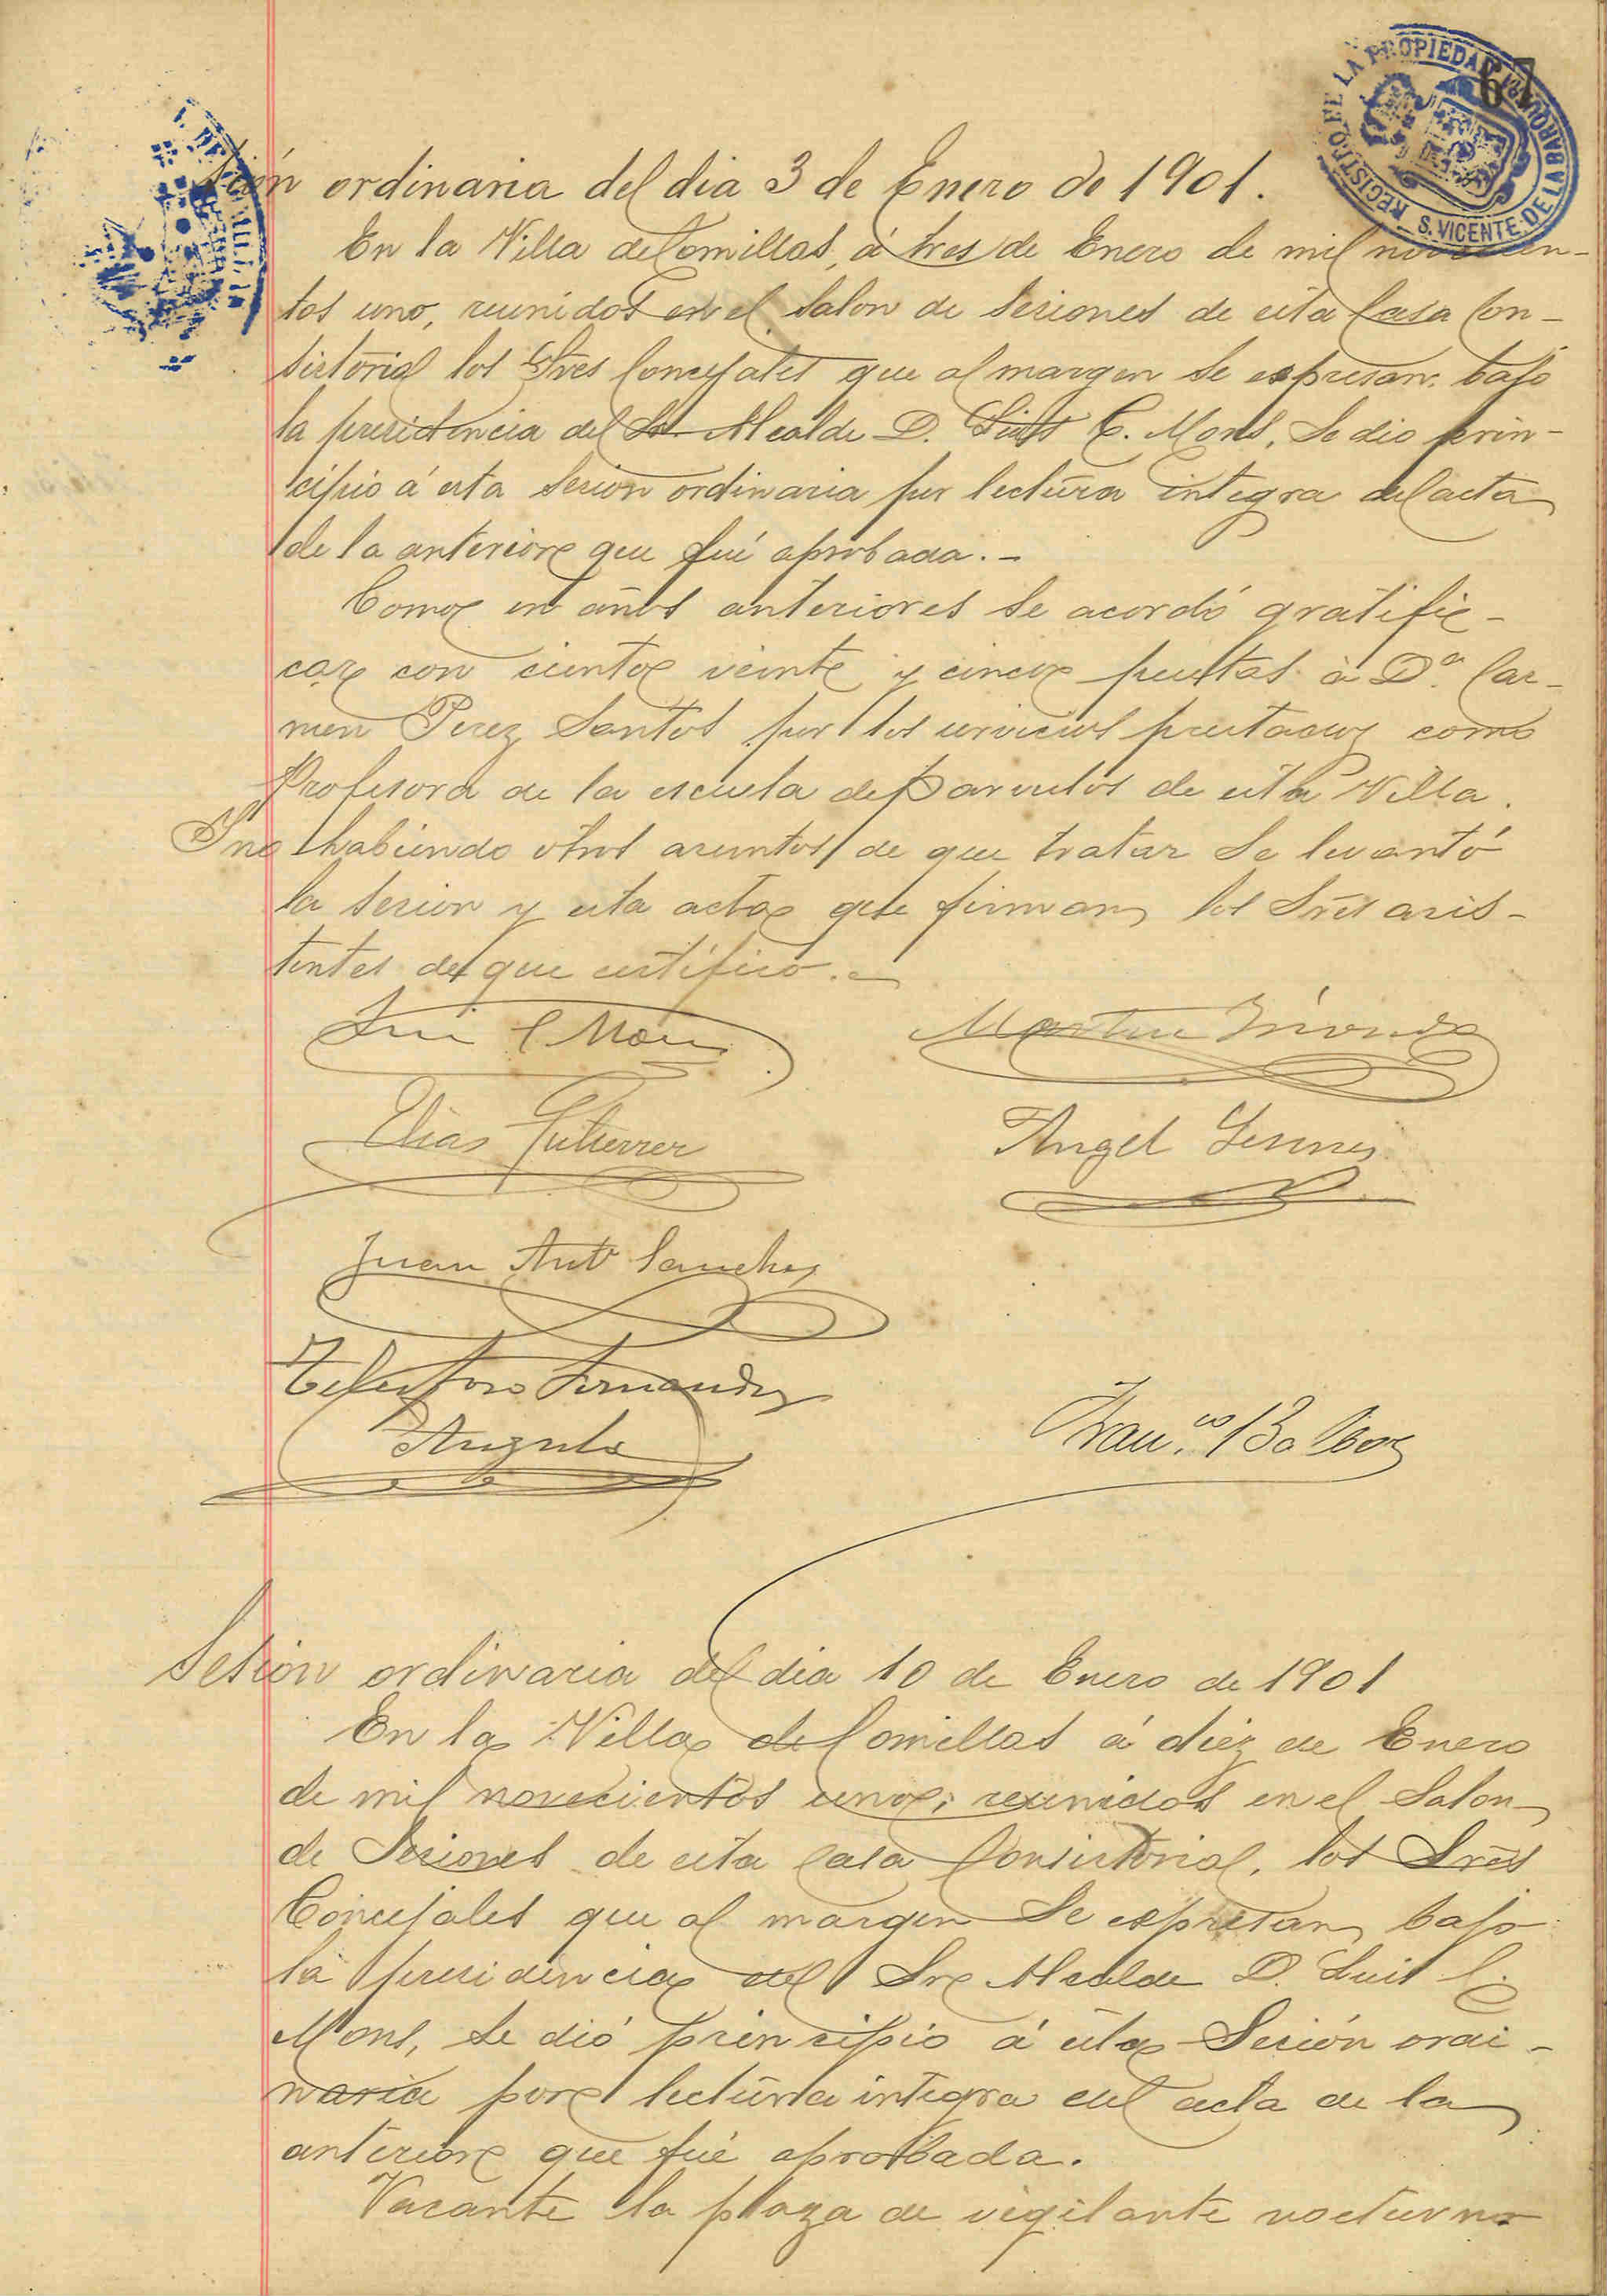 67
REGISTRO DE LA PROPIEDAD
S. VICENTE DE LA BARQUERA
Sesión ordinaria del dia 3 de Enero de 1901.
En la Villa de Comillas, á tres de Enero de mil novecien-
tos uno, reunidos en el Salon de Sesiones de esta Casa Con-
sistorial los Sres Concejales que al margen se espresan bajo
la presidencia del Sr. Alcalde D. Luis C. Mons, se dio prin-
cipio á esta sesion ordinaria por lectura integra del acta
de la anterior que fué aprobada.-
Como en años anteriores se acordó gratifi-
car con ciento veinte y cinco pesetas á Dª. Car-
men Perez Santos por los servicios prestados como
Profesora de la escuela de Parvulos de esta Villa.
Y no habiendo otros asuntos de que tratar se levantó
la sesion y esta acta que firman los Sres asis-
tentes de que certifico.-
Luis C Mons
Martin
Elias Gutierrez
Angel
Juan Antº Sanchez
Telesforo Fernandez
Angulo
Franco. Balbas
Sesión ordinaria del dia 10 de Enero de 1901
En la Villa de Comillas á diez de Enero
de mil novecientos uno, reunidos en el Salon
de Sesiones de esta Casa Consistorial, los Sres
Concejales que al margen se espresan bajo
la presidencia del Sr Alcalde D. Luis C.
Mons, se dió principio á esta Sesión ordi-
naria por lectura integra del acta de la
anterior que fué aprobada.
Vacante la plaza de vigilante nocturno